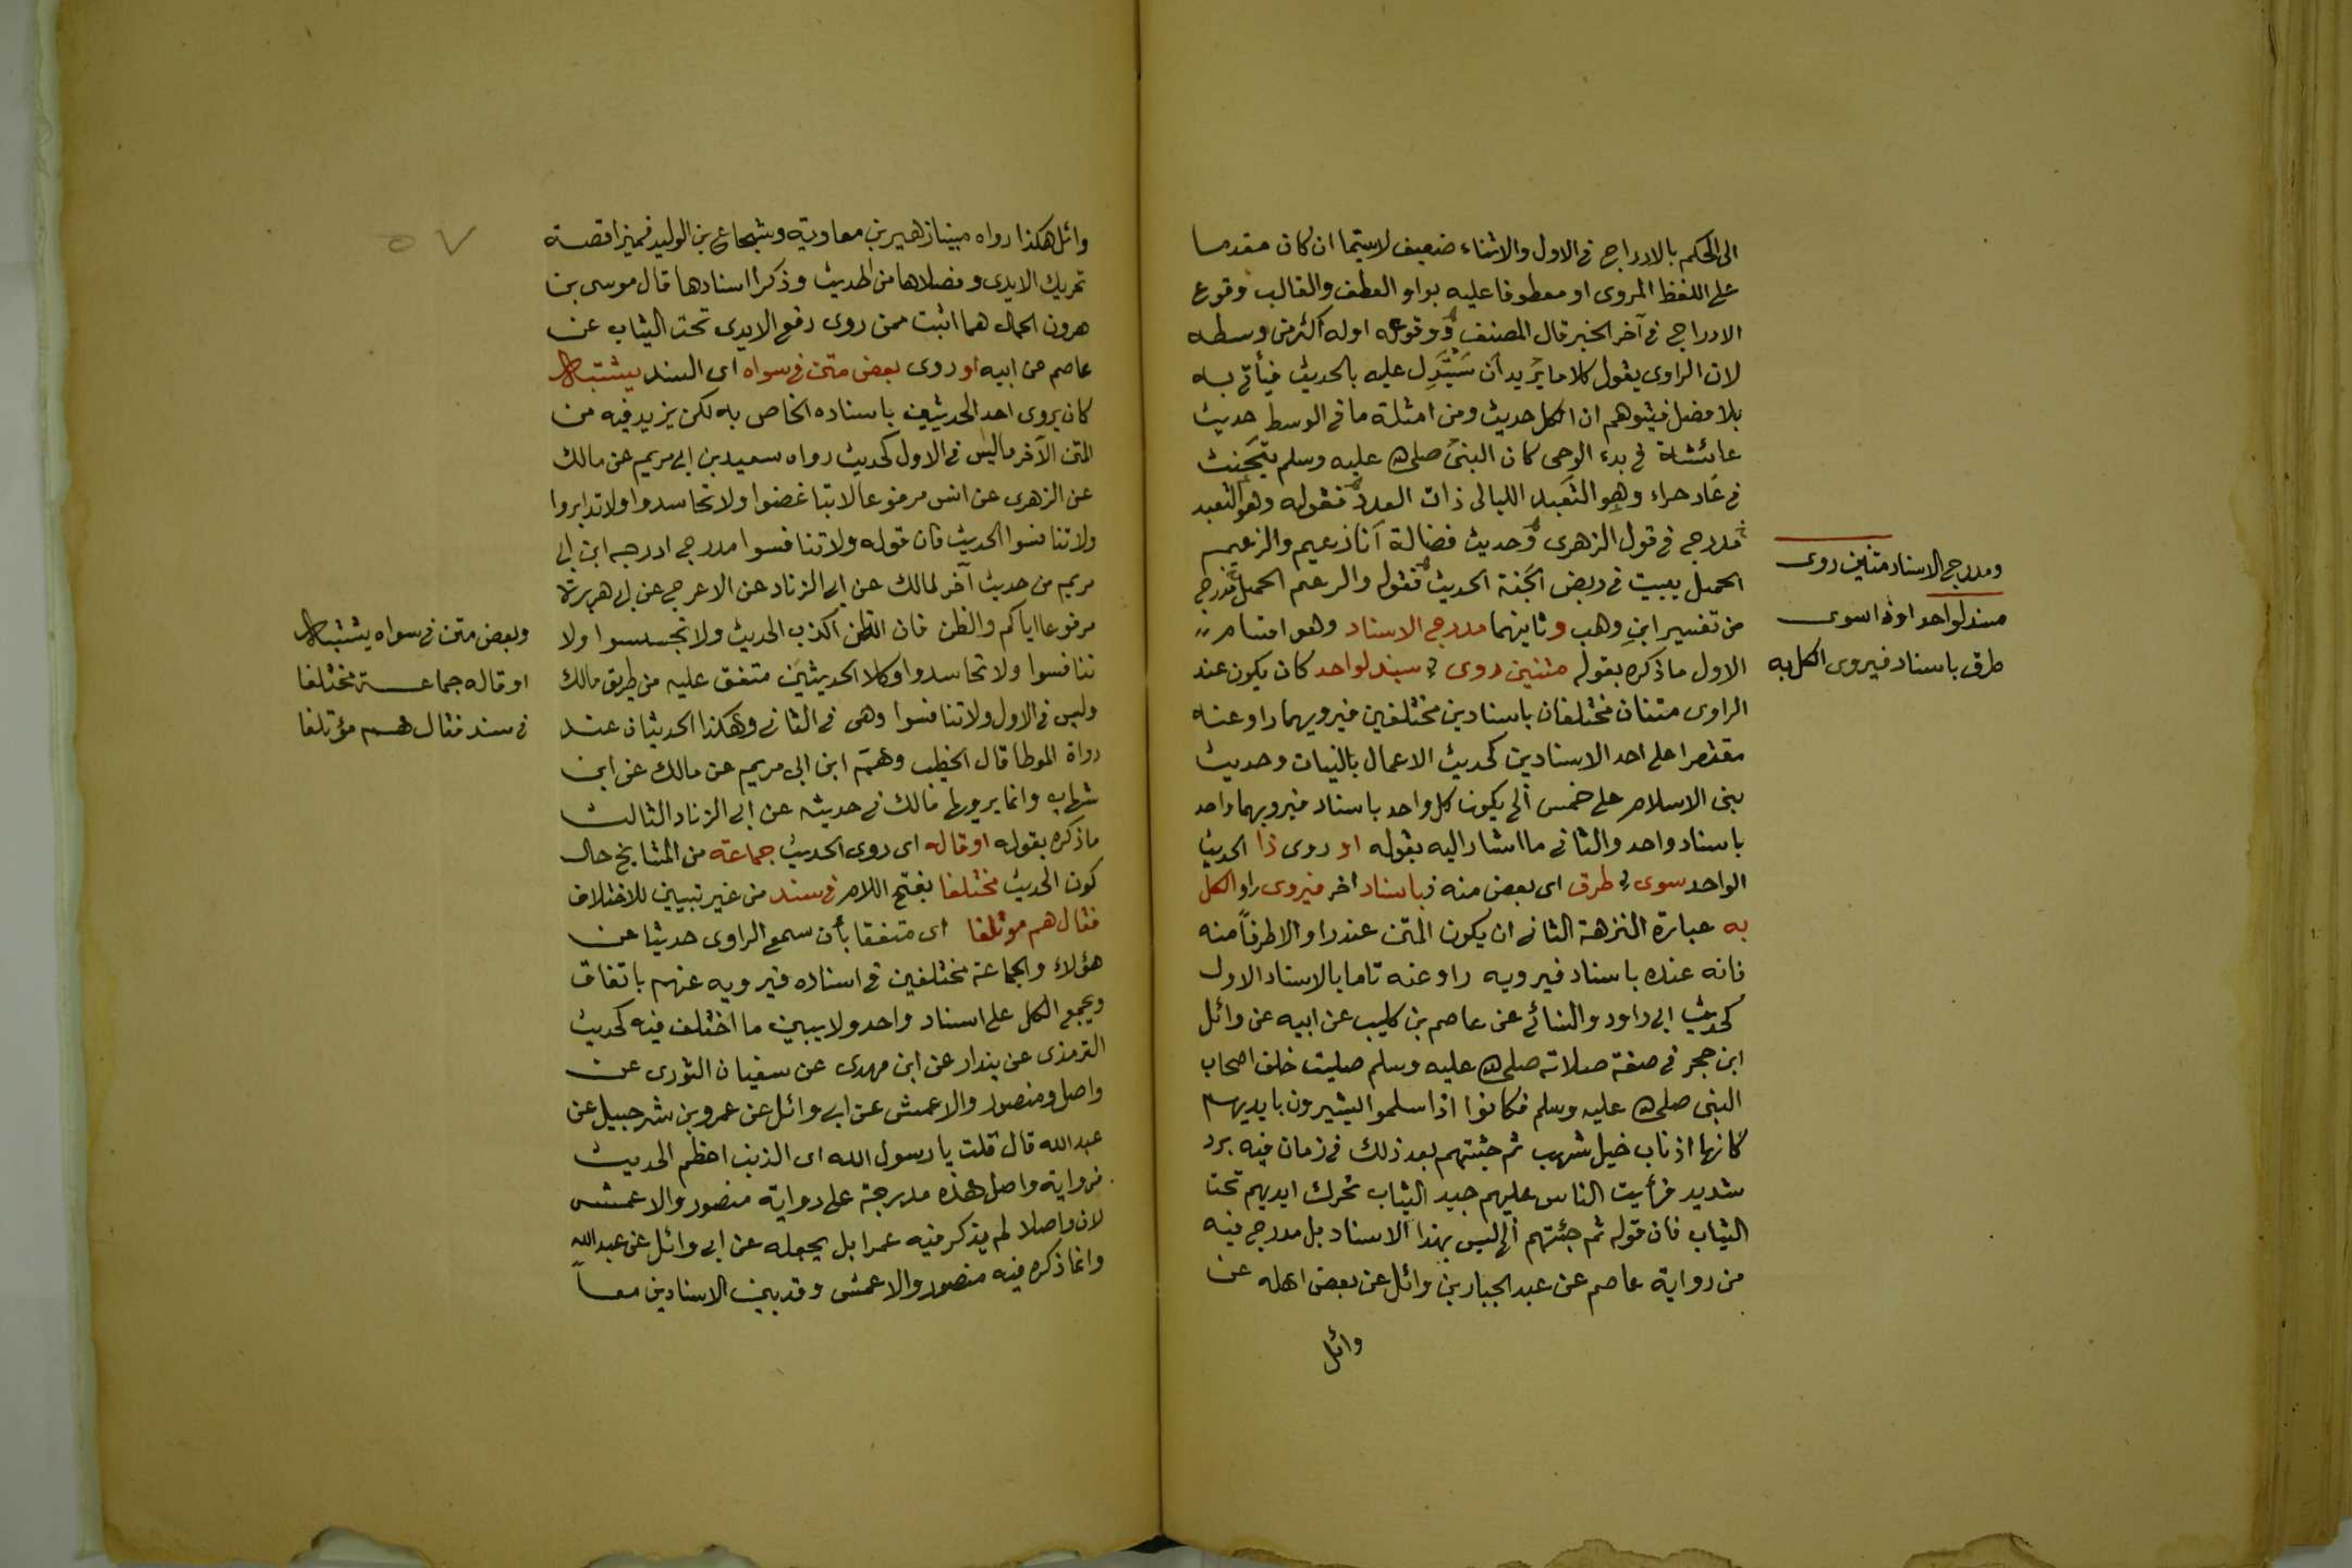 الى الحكم بالادراج فى الاول والاثناء ضعيف لاسيما ان كان مقدما
على اللفظ المروى او معطوفا عليه بواو العطف والغالب وقوع
الادراج فى آخر الخبر قال المصنف ووقوعه اوله اكثر من وسطه
لان الراوى يقول كلاما يريد ان يستدل عليه بالحديث فيأتى به
بلا فصل فيتوهم ان الكل حديث ومن امثلة ما فى الوسط حديث
عائشة فى بدء الوحى كان النبى صلى الله عليه وسلم يتحنث
فى غار حراء وهو التعبد الليالى ذات العدد فقوله وهو التعبد
مدرج فى قول الزهرى وحديث فضالة انا زعيم والزعيم
الحميل ببيت فى ربض الجنة الحديث فقوله والزعيم الحميل مدرج
من تفسير ابن وهب وثانيهما مدرج الاسناد وهو اقسام
الاول ما ذكره بقوله متنين روى بسند لواحد كان يكون عند
الراوى متنان مختلفان باسنادين مختلفين فيرويهما راو عنه
مقتصرا على احد الاسنادين كحديث الاعمال بالنيات وحديث
بنى الاسلام على خمس الى يكون كل واحد باسناد فيرويهما واحد
باسناد واحد والثانى ما اشار اليه بقوله او روى ذا الحديث
الواحد سوى طرق اى بعض منه فباسناد اخر فيروى راو الكل
به عبارة النزهة الثانى ان يكون المتن عند راو الا طرفا منه
فانه عنده باسناد فيرويه راو عنه تاما بالاسناد الاول
كحديث ابى داود والنسائى عن عاصم بن كليب عن ابيه عن وائل
ابن حجر فى صفة صلاته صلى الله عليه وسلم صليت خلف اصحاب
النبى صلى الله عليه وسلم فكانوا اذا سلموا يشيرون بايديهم
كأنها اذناب خيل شهب ثم جئتهم بعد ذلك فى زمان فيه برد
شديد فرأيت الناس عليهم جيد الثياب تحرك ايديهم تحت
الثياب فان قوله ثم جئتهم الخ ليس بهذا الاسناد بل مدرج فيه
من رواية عاصم عن عبد الجبار بن وائل عن بعض اهله عن
وائل
ومدرج الاسناد متنين روى
مسند لواحد او ذا سوى
طرق باسناد فيروى الكل به
وائل هكذا رواه مبينا زهير بن معاوية وشجاع بن الوليد فميزا قصة
تحريك الايدى وفصلاها من الحديث وذكرا اسنادها قال موسى بن
هرون الحمال هما اثبت ممن روى رفع الايدى تحت الثياب عن
عاصم عن ابيه او روى بعض متن فى سواه اى السند يشتبه
كان يروى احد الحديثين باسناده الخاص به لكن يزيد فيه من
المتن الآخر ما ليس فى الاول كحديث رواه سعيد بن ابى مريم عن مالك
عن الزهرى عن انس مرفوعا لا تباغضوا ولا تحاسدوا ولا تدابروا
ولا تنافسوا الحديث فان قوله ولا تنافسوا مدرج ادرجه ابن ابى
مريم من حديث آخر لمالك عن ابى الزناد عن الاعرج عن ابى هريرة
مرفوعا اياكم والظن فان الظن اكذب الحديث ولا تجسسوا ولا
تنافسوا ولا تحاسدوا وكلا الحديثين متفق عليه من طريق مالك
وليس فى الاول ولا تنافسوا وهى فى الثانى وهكذا الحديثان عند
رواة الموطا قال الخطيب وهم ابن ابى مريم عن مالك عن ابن
شهاب وانما يرويها مالك فى حديثه عن ابى الزناد الثالث
ما ذكره بقوله او قاله اى روى الحديث جماعة من المشايخ حال
كون الحديث مختلفا بفتح اللام فى سند من غير تبيين للاختلاف
فقال هم موتلفا اى متفقا بأن سمع الراوى حديثا عن
هؤلاء والجماعة مختلفين فى اسناده فيرويه عنهم باتفاق
ويجمع الكل على اسناد واحد ولا يبين ما اختلف فيه كحديث
الترمذى عن بندار عن ابن مهدى عن سفيان الثورى عن
واصل ومنصور والاعمش عن ابى وائل عن عمرو بن شرحبيل عن
عبد الله قال قلت يا رسول الله اى الذنب اعظم الحديث
فرواية واصل هذه مدرجة على رواية منصور والاعمش
لان واصلا لم يذكر فيه عمرا بل يجعله عن ابى وائل عن عبد الله
وانما ذكره فيه منصور والاعمش وقد بين الاسنادين معا
وبعض متن فى سواه يشتبه
او قاله جماعة مختلفا
فى سند فقال هم مؤتلفا